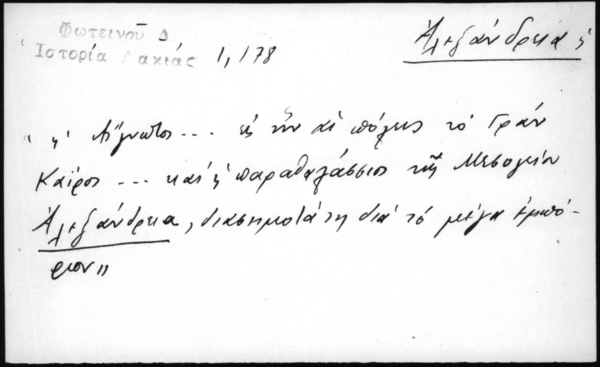 Φωτεινοῦ Δ
Ἱστορία Δακιάς 1, 178
Ἀλεξάνδρεια ἡ
"ἡ Αἴγυπτος ... εἰς τὴν αἱ πόλεις τὸ Γράν
Καῖρος ... καὶ ἡ παραθαλάσσιος τῆς Μεσογείου
Ἀλεξάνδρεια, διασημοτάτη διὰ τὸ μέγα ἐμπό-
ριον"